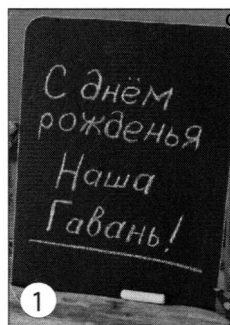 С днём
рожденья
Наша
Гавань!
1